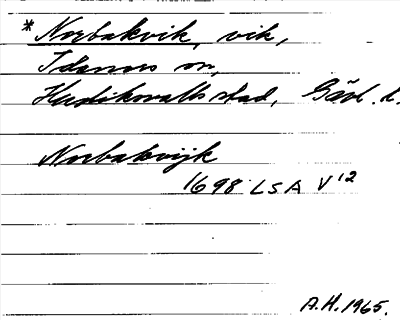 *Norbakvik, vik,
Idenors sn,
Hudiksvalls stad, Gävl. l.
Norbakvijk
1698 LSA V 12
A.H. 1965.